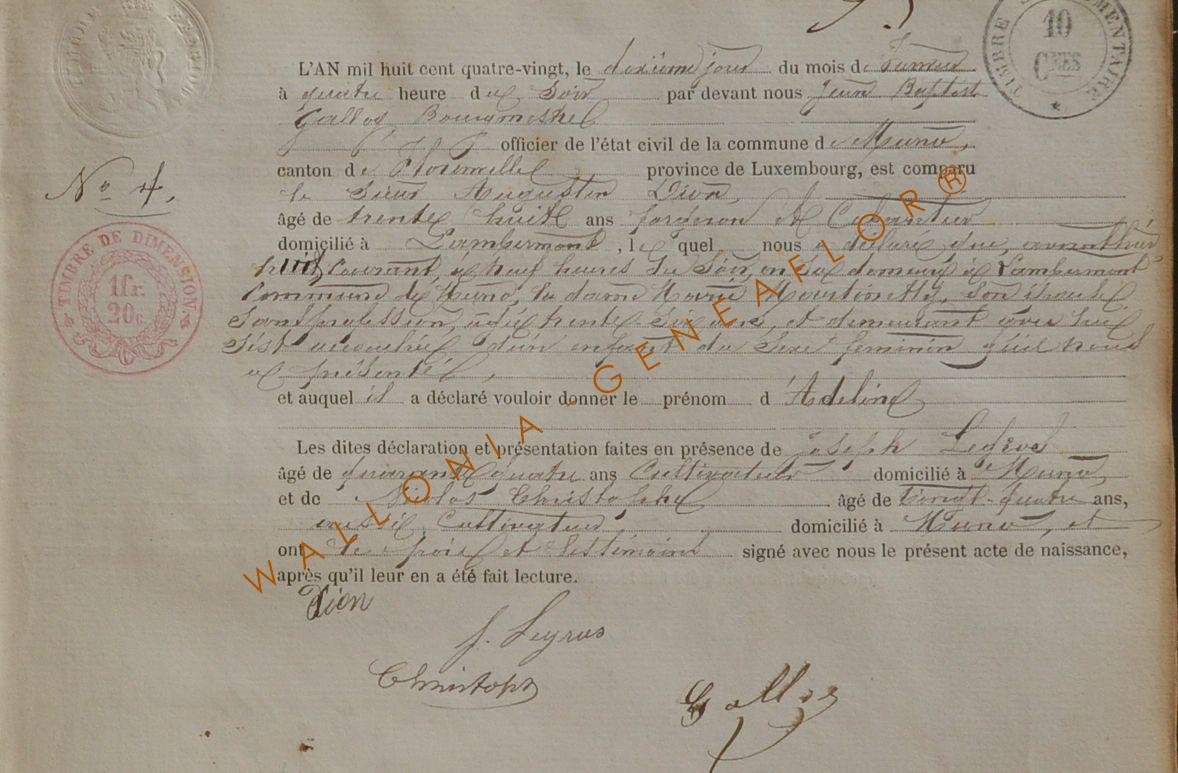 TIMBRE SUPPLÉMENTAIRE
10
CMES
L'AN mil huit cent quatre-vingt, le dixième jour du mois de Janvier
à quatre heure du Soir par devant nous Jean Baptiste
Gallog Bourgmestre
officier de l'état civil de la commune de Muno,
canton de Florenville province de Luxembourg, est comparu
le Sieur Augustin Dion,
No 4.
âgé de trente huit ans forgeron et Cabaretier
domicilié à Lambermont, lequel nous a déclaré que, avant hier
huit Courant, à neuf heures du Soir, en sa demeure à Lambermont
Commune de Muno, la dame Marie Martinetty, son épouse
Sans profession, âgée trente-six ans, et demeurant avec lui
s'est accouchée d'un enfant du Sexe feminin qu'il nous
a présenté,
et auquel il a déclaré vouloir donner le prénom d'Adeline
TIMBRE DE DIMENSION
1fr.
20c.
Les dites déclaration et présentation faites en présence de Joseph
âgé de quarante quatre ans Cultivateur domicilié à Muno
et de Nicolas Christophe âgé de vingt-quatre ans,
aussi Cultivateur, domicilié à Muno, et
ont le père et les témoins signé avec nous le présent acte de naissance,
après qu'il leur en a été fait lecture.
Dion
Christoph
WALLONIA-GENEAFLOR®